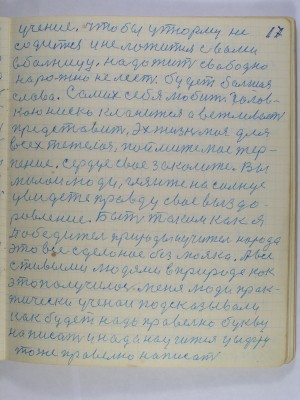 17
учение, чтобы утюрму не
содится и неложится свами
в балницу, надо жит свабодно
наро-жно не лест будет балшая
слава. Самих себя любит голов-
кою ниско кланится а вежливат
представит, Эх жизня моя для
всех тежолоя, поймите мое тер-
пение, сердце свае закалите. Вы
милои люди, гляните на солнце
увидете правду свае выздо-
равление. Быть таким как я
победител природы и учител народа
это все сделоное без
людями в природе как
это получилос, меня люди прак-
тически ученаи подсказывали
как будет надо правелно букву
написат и надо научится и иду
тоже правелно написат